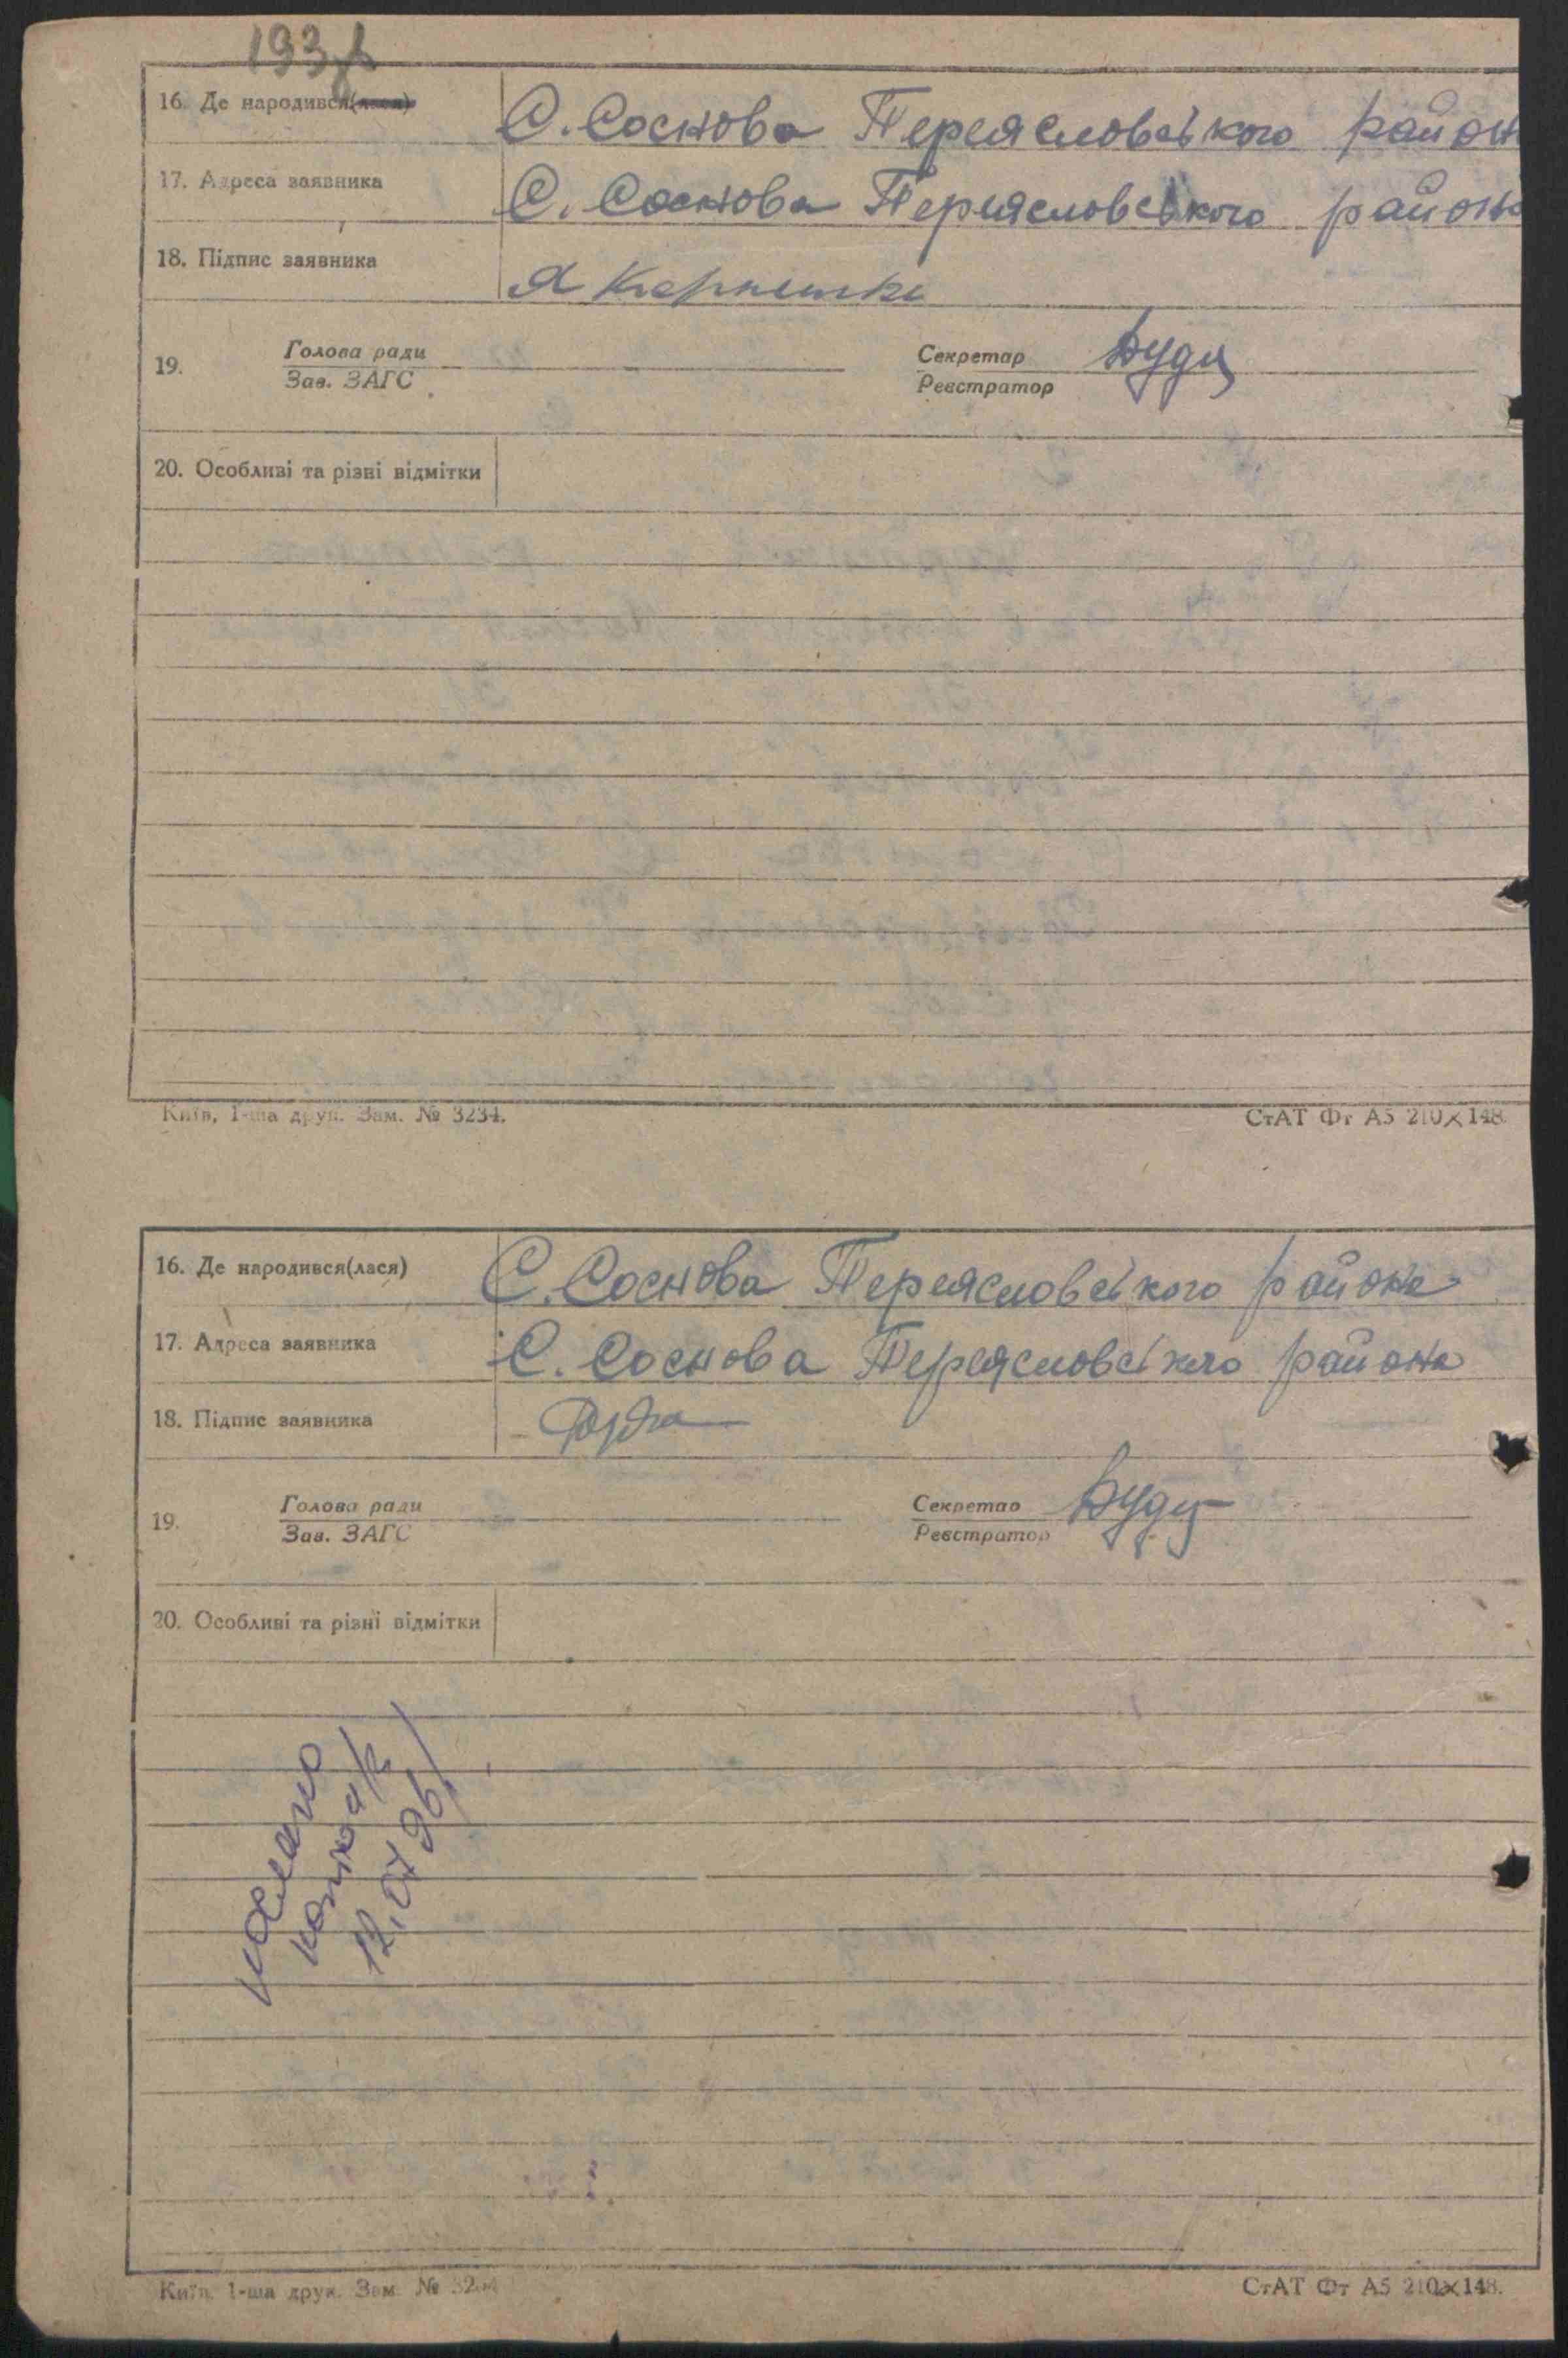 193
16. Де народився(лася) С. Соснова Переясловського район
17. Адреса заявника С. Соснова Переясловського района
18. Підпис заявника
19. Голова ради Секретар
Зав. ЗАГС Реєстратор
20. Особливі та різні відмітки
Київ, 1-ша друк. Зам. № 3234.
СтАТ Фт А5 210×148.
16. Де народився(лася) С. Соснова Переясловського района
17. Адреса заявника С. Соснова Переясловського района
18. Підпис заявника
19. Голова ради Секретар
Зав. ЗАГС Реєстратор
20. Особливі та різні відмітки
послано
копію а/з
12.07.96
Київ, 1-ша друк. Зам. №
СтАТ Фт А5 210×148.